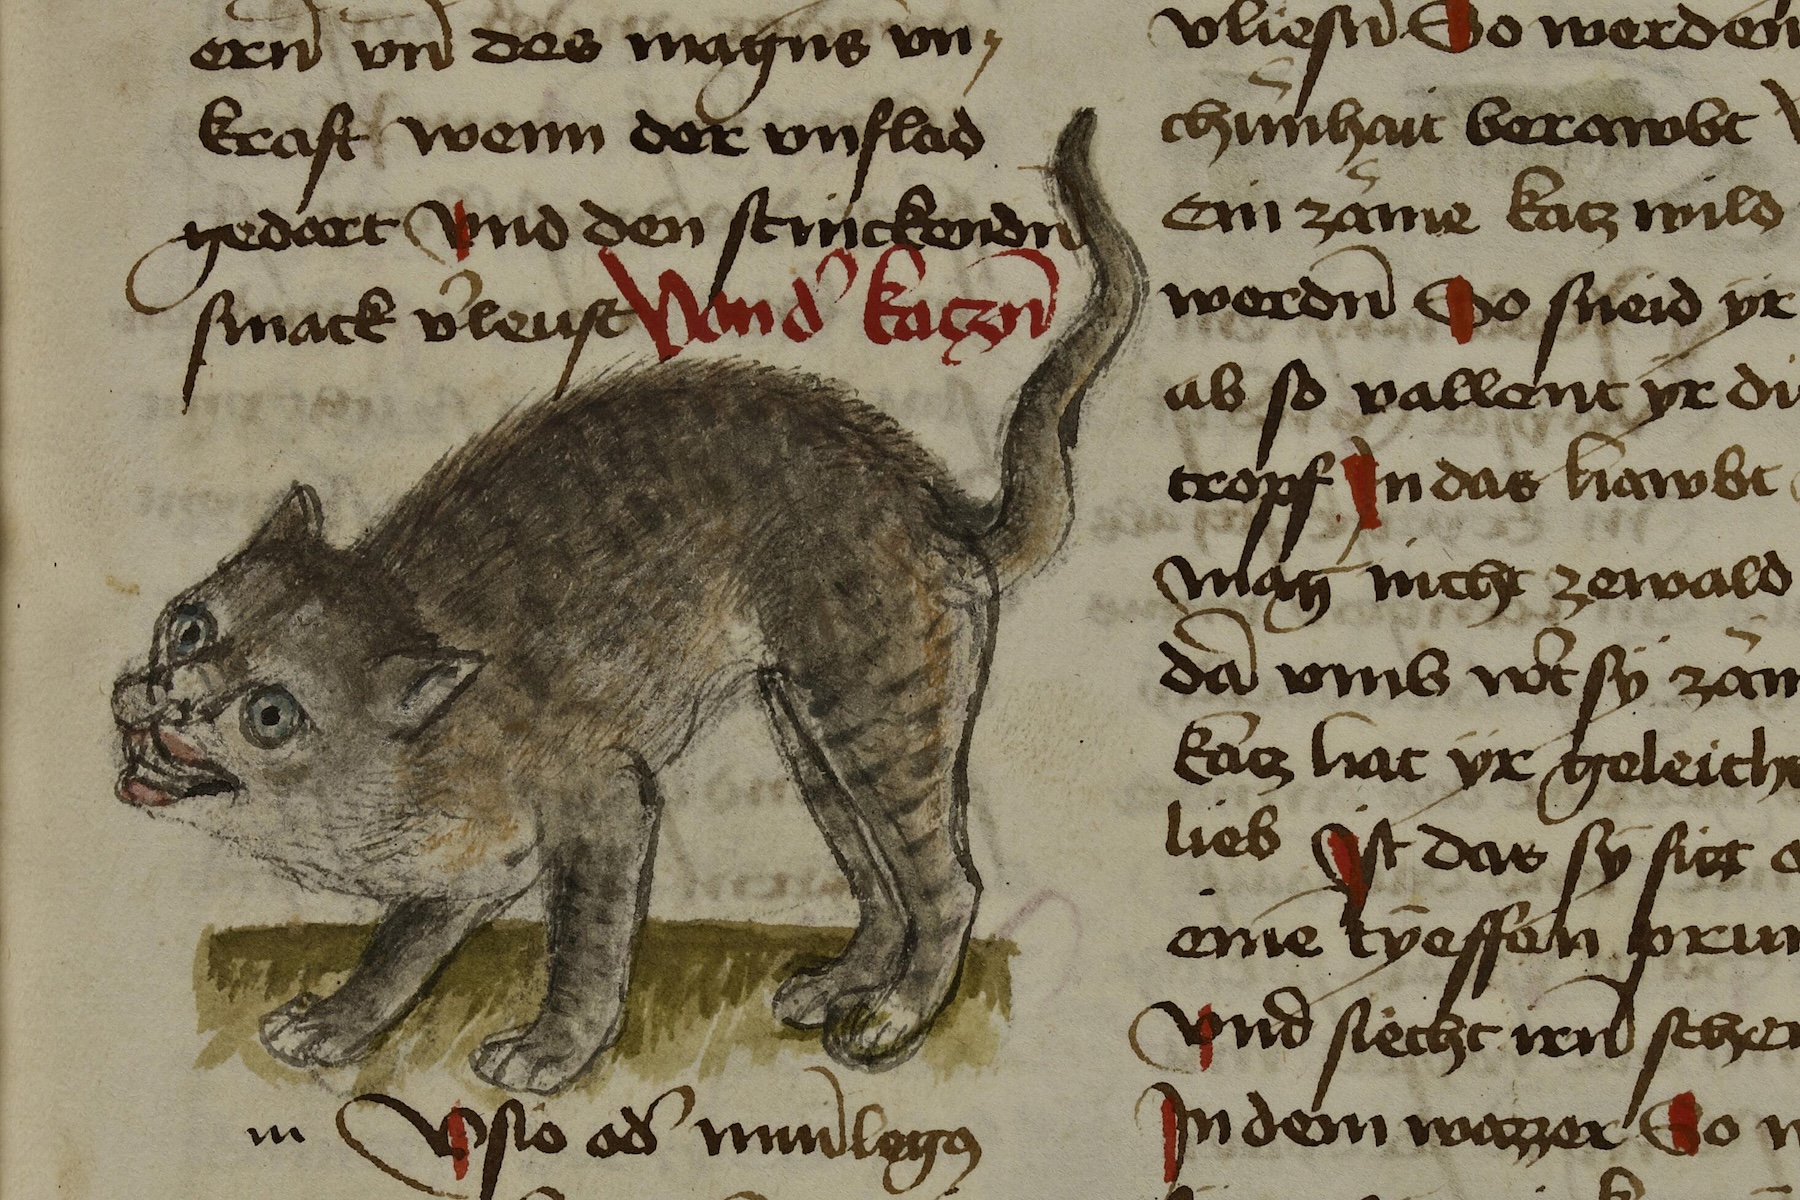 ern̄ vn̄ des magns vn,
kraft wenn der vnflad
gedort Vnd den stinckendn
smack v̉leust Von d' kaczn̄
m Vsio od' mun̄legꝯ
vliesn̄ So werden
chünhait berawbt
Ein zäme katz wild
werdn̄ So sneid yr
ab so vallent yr di
tropf In das hawbt
mag nicht zewald
dā vmb wirt sy zäm
katz hat yr geleich
lieb Ist das sy sitzt
eine tyeffen prun
Vnd siecht irn̄ schem
In dem wazzer So